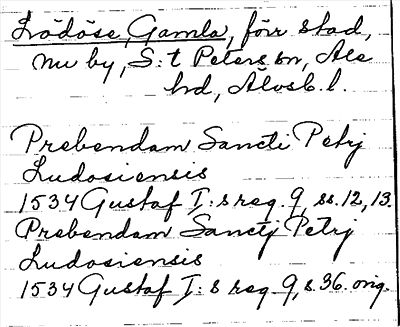 Lödöse, Gamla, förr stad,
nu by, S:t Peters sn, Ale
hd, Älvsb. l.
Prebendam Sancti Petrj
Ludosiensis
1534 Gustaf I:s reg. 9, ss. 12, 13.
Prebendam Sanctj Petrj
Ludosiensis
1534 Gustaf I:s reg. 9, s. 36. orig.